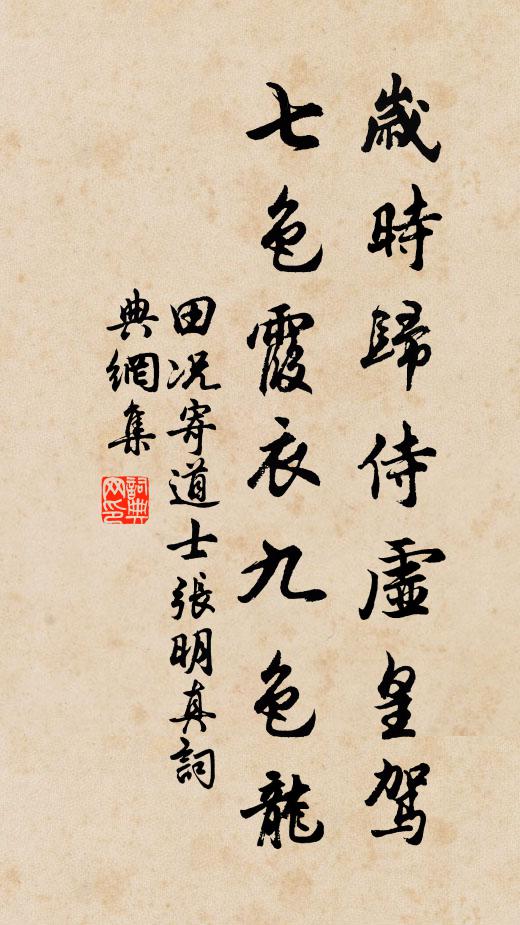 歲時歸侍虛皇駕
七色霞衣九色龍
田况寄道士張明真詞
典網集
詞典网印